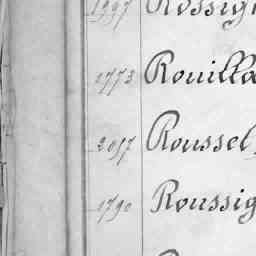 1997 Rossig
1773 Rouilla
2077 Roussel
1790 Roussig